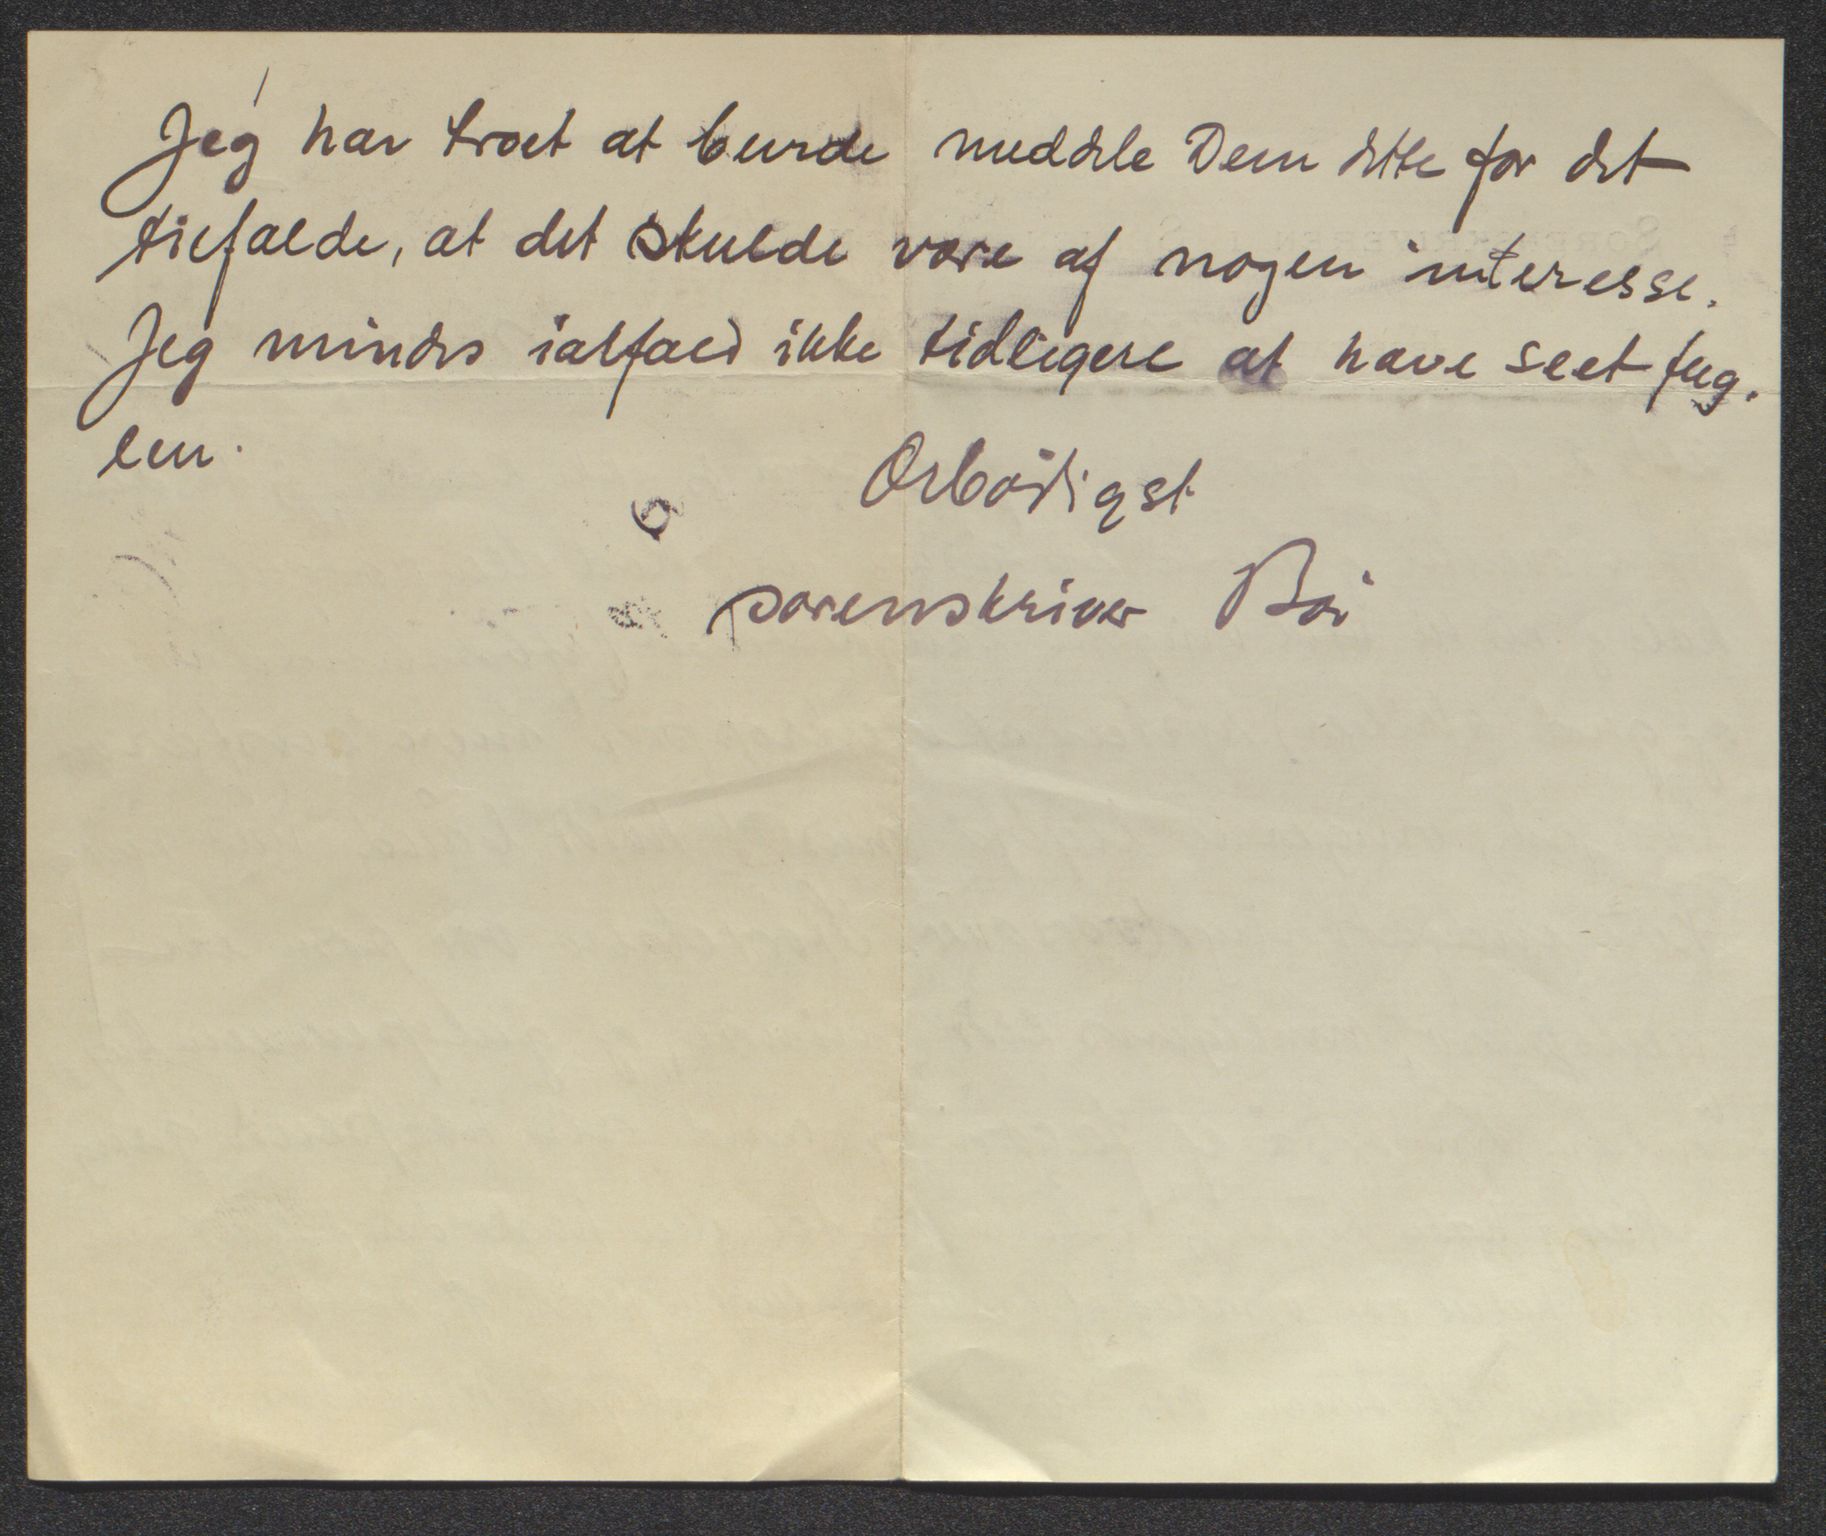 Jeg har troet at burde meddele Dem dette for det
tilfælde, at det skulde være af nogen interesse.
Jeg mindes ialfald ikke tidligere at have seet fug-
len.
Ærbødigst
sorenskriver Bøi